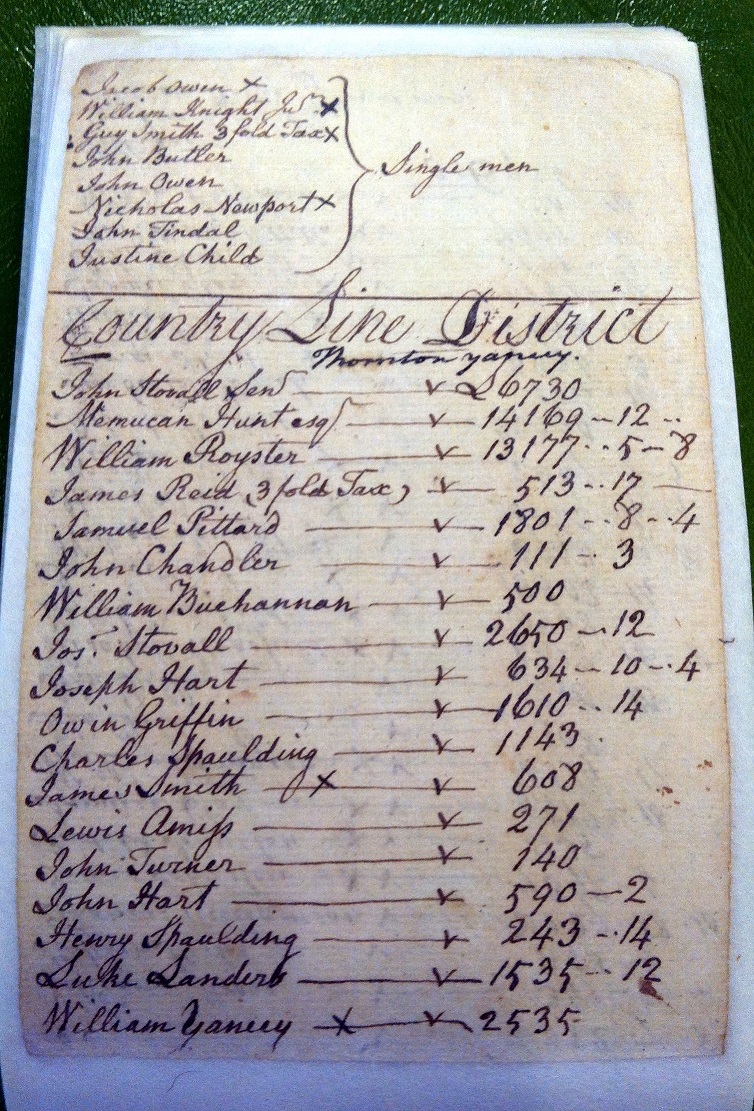 Jacob Owen x
William Knight Junr x
Guy Smith 3 fold Tax x
John Butler
John Owen
Nicholas Newport x
John Tindal
Justine Child
Single men
Country Line District
Thornton Yancey.
John Stovall Senr v £6730
Memucan Hunt esqr v 14169--12--
William Royster v 13177--5--8
James Reid, 3 fold Tax, v 513--17
Samuel Pittard v 1801--8--4
John Chandler v 111--3
William Buchannan v 500
Jos. Stovall v 2650--12
Joseph Hart v 634--10--4
Owin Griffin v 1610--14
Charles Spaulding v 1143
James Smith x v 608
Lewis Amiss v 271
John Turner v 140
John Hart v 590--2
Henry Spaulding v 243--14
Luke Landers v 1535--12
William Yancey x v 2535